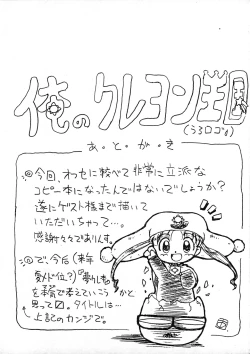 俺のクレヨン王国
(うろロゴ)
あ・と・が・き
今回、わセに較べて非常に立派な
コピー本になったんではないでしょうか?
遂にゲスト様まで描いて
いただいちゃって…。
感謝々々でありんす。
で、今后(来年
夏メド位?)『夢りしも』
を考えていこうかと
思って〼。タイトルは…
上記のカンジで。